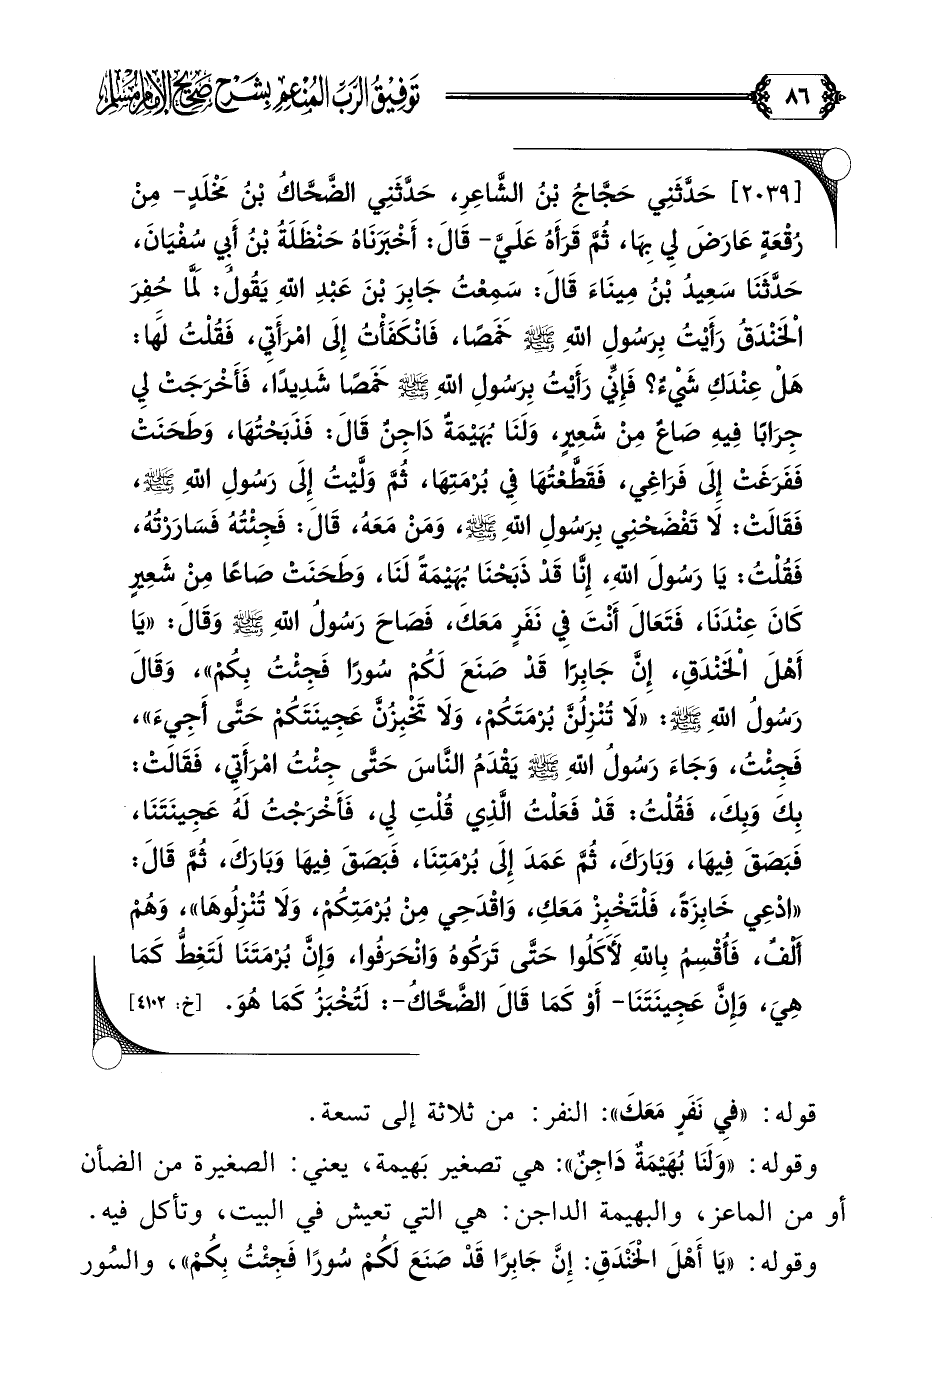 ٨٦ توفيق الرب المنعم بشرح صحيح الإمام مسلم
[٢٠٣٩] حَدَّثَنِي حَجَّاجُ بْنُ الشَّاعِرِ، حَدَّثَنِي الضَّحَّاكُ بْنُ مَخْلَدٍ- مِنْ
رُقْعَةٍ عَارَضَ لِي بِهَا، ثُمَّ قَرَأَهُ عَلَيَّ- قَالَ: أَخْبَرَنَاهُ حَنْظَلَةُ بْنُ أَبِي سُفْيَانَ،
حَدَّثَنَا سَعِيدُ بْنُ مِينَاءَ قَالَ: سَمِعْتُ جَابِرَ بْنَ عَبْدِ اللهِ يَقُولُ: لَمَّا حُفِرَ
الْخَنْدَقُ رَأَيْتُ بِرَسُولِ اللهِ ﷺ خَمَصًا، فَانْكَفَأْتُ إِلَى امْرَأَتِي، فَقُلْتُ لَهَا:
هَلْ عِنْدَكِ شَيْءٌ؟ فَإِنِّي رَأَيْتُ بِرَسُولِ اللهِ ﷺ خَمَصًا شَدِيدًا، فَأَخْرَجَتْ لِي
جِرَابًا فِيهِ صَاعٌ مِنْ شَعِيرٍ، وَلَنَا بُهَيْمَةٌ دَاجِنٌ قَالَ: فَذَبَحْتُهَا، وَطَحَنَتْ
فَفَرَغَتْ إِلَى فَرَاغِي، فَقَطَّعْتُهَا فِي بُرْمَتِهَا، ثُمَّ وَلَّيْتُ إِلَى رَسُولِ اللهِ ﷺ،
فَقَالَتْ: لَا تَفْضَحْنِي بِرَسُولِ اللهِ ﷺ، وَمَنْ مَعَهُ، قَالَ: فَجِئْتُهُ فَسَارَرْتُهُ،
فَقُلْتُ: يَا رَسُولَ اللهِ، إِنَّا قَدْ ذَبَحْنَا بُهَيْمَةً لَنَا، وَطَحَنَتْ صَاعًا مِنْ شَعِيرٍ
كَانَ عِنْدَنَا، فَتَعَالَ أَنْتَ فِي نَفَرٍ مَعَكَ، فَصَاحَ رَسُولُ اللهِ ﷺ وَقَالَ: «يَا
أَهْلَ الْخَنْدَقِ، إِنَّ جَابِرًا قَدْ صَنَعَ لَكُمْ سُورًا فَجِئْتُ بِكُمْ»، وَقَالَ
رَسُولُ اللهِ ﷺ: «لَا تُنْزِلُنَّ بُرْمَتَكُمْ، وَلَا تَخْبِزُنَّ عَجِينَتَكُمْ حَتَّى أَجِيءَ»،
فَجِئْتُ، وَجَاءَ رَسُولُ اللهِ ﷺ يَقْدَمُ النَّاسَ حَتَّى جِئْتُ امْرَأَتِي، فَقَالَتْ:
بِكَ وَبِكَ، فَقُلْتُ: قَدْ فَعَلْتُ الَّذِي قُلْتِ لِي، فَأَخْرَجْتُ لَهُ عَجِينَتَنَا،
فَبَصَقَ فِيهَا، وَبَارَكَ، ثُمَّ عَمَدَ إِلَى بُرْمَتِنَا، فَبَصَقَ فِيهَا وَبَارَكَ، ثُمَّ قَالَ:
«ادْعِي خَابِزَةً، فَلْتَخْبِزْ مَعَكِ، وَاقْدَحِي مِنْ بُرْمَتِكُمْ، وَلَا تُنْزِلُوهَا»، وَهُمْ
أَلْفٌ، فَأُقْسِمُ بِاللهِ لَأَكَلُوا حَتَّى تَرَكُوهُ وَانْحَرَفُوا، وَإِنَّ بُرْمَتَنَا لَتَغِطُّ كَمَا
هِيَ، وَإِنَّ عَجِينَتَنَا- أَوْ كَمَا قَالَ الضَّحَّاكُ-: لَتُخْبَزُ كَمَا هُوَ. [خ: ٤١٠٢]
قوله: «فِي نَفَرٍ مَعَكَ»: النفر: من ثلاثة إلى تسعة.
وقوله: «وَلَنَا بُهَيْمَةٌ دَاجِنٌ»: هي تصغير بَهيمة، يعني: الصغيرة من الضأن
أو من الماعز، والبهيمة الداجن: هي التي تعيش في البيت، وتأكل فيه.
وقوله: «يَا أَهْلَ الْخَنْدَقِ: إِنَّ جَابِرًا قَدْ صَنَعَ لَكُمْ سُورًا فَجِئْتُ بِكُمْ»، والسُور